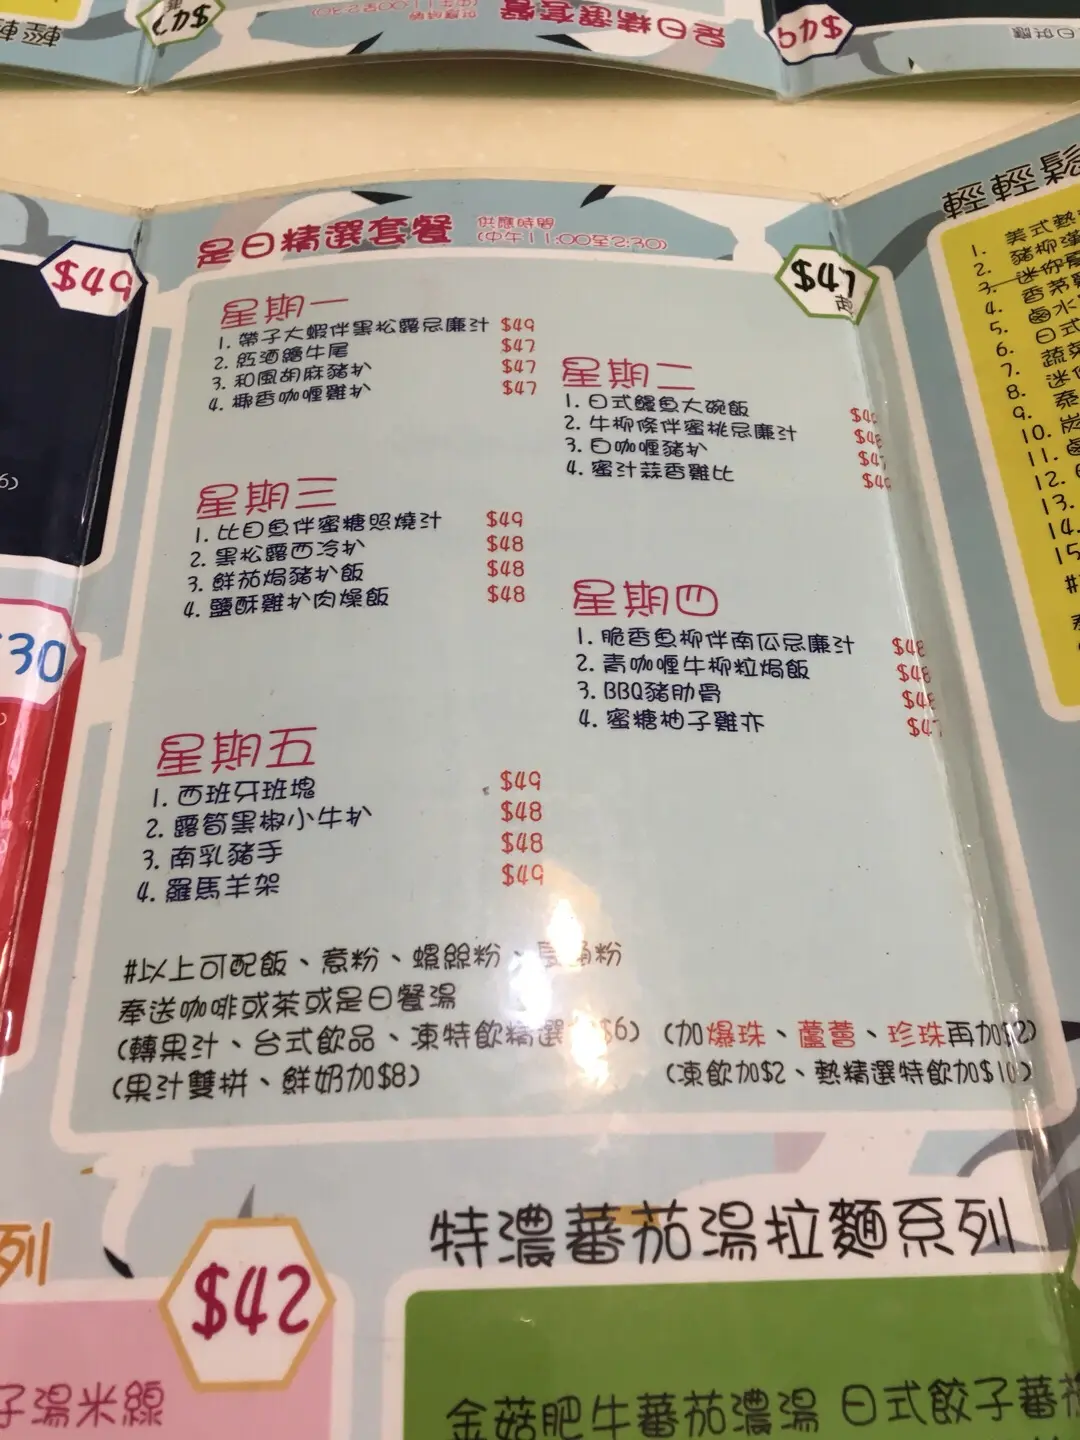 是日精選套餐 供應時間
(中午11:00至2:30)
$49
$47
起
星期一
1. 帶子大蝦伴黑松露忌廉汁 $49
2. 紅酒繪牛尾 $47
3. 和風胡麻豬扒 $47
4. 椰香咖喱雞扒 $47
星期二
1. 日式鰻魚大碗飯
2. 牛柳條伴蜜桃忌廉汁
3. 白咖喱豬扒
4. 蜜汁蒜香雞比
星期三
1. 比目魚伴蜜糖照燒汁 $49
2. 黑松露西冷扒 $48
3. 鮮茄焗豬扒飯 $48
4. 鹽酥雞扒肉燥飯 $48
星期四
1. 脆香魚柳伴南瓜忌廉汁 $48
2. 青咖喱牛柳粒焗飯 $48
3. BBQ豬肋骨 $48
4. 蜜糖柚子雞亦 $47
星期五
1. 西班牙班塊 $49
2. 露筍黑椒小牛扒 $48
3. 南乳豬手 $48
4. 羅馬羊架 $49
#以上可配飯、意粉、螺絲粉、
奉送咖啡或茶或是日餐湯
(轉果汁、台式飲品、凍特飲精選 $6) (加爆珠、蘆薈、珍珠再加$2)
(果汁雙拼、鮮奶加$8) (凍飲加$2、熱精選特飲加$10)
輕輕鬆
1. 美式熱
2. 豬柳漢
3. 迷你
4. 香茅
5. 鹵水
6. 日式
7. 蔬菜
8. 迷你
9. 泰
10. 炭
11.
12.
13.
14.
15
$42
特濃蕃茄湯拉麵系列
列
子湯米線
金菇肥牛蕃茄濃湯 日式餃子蕃